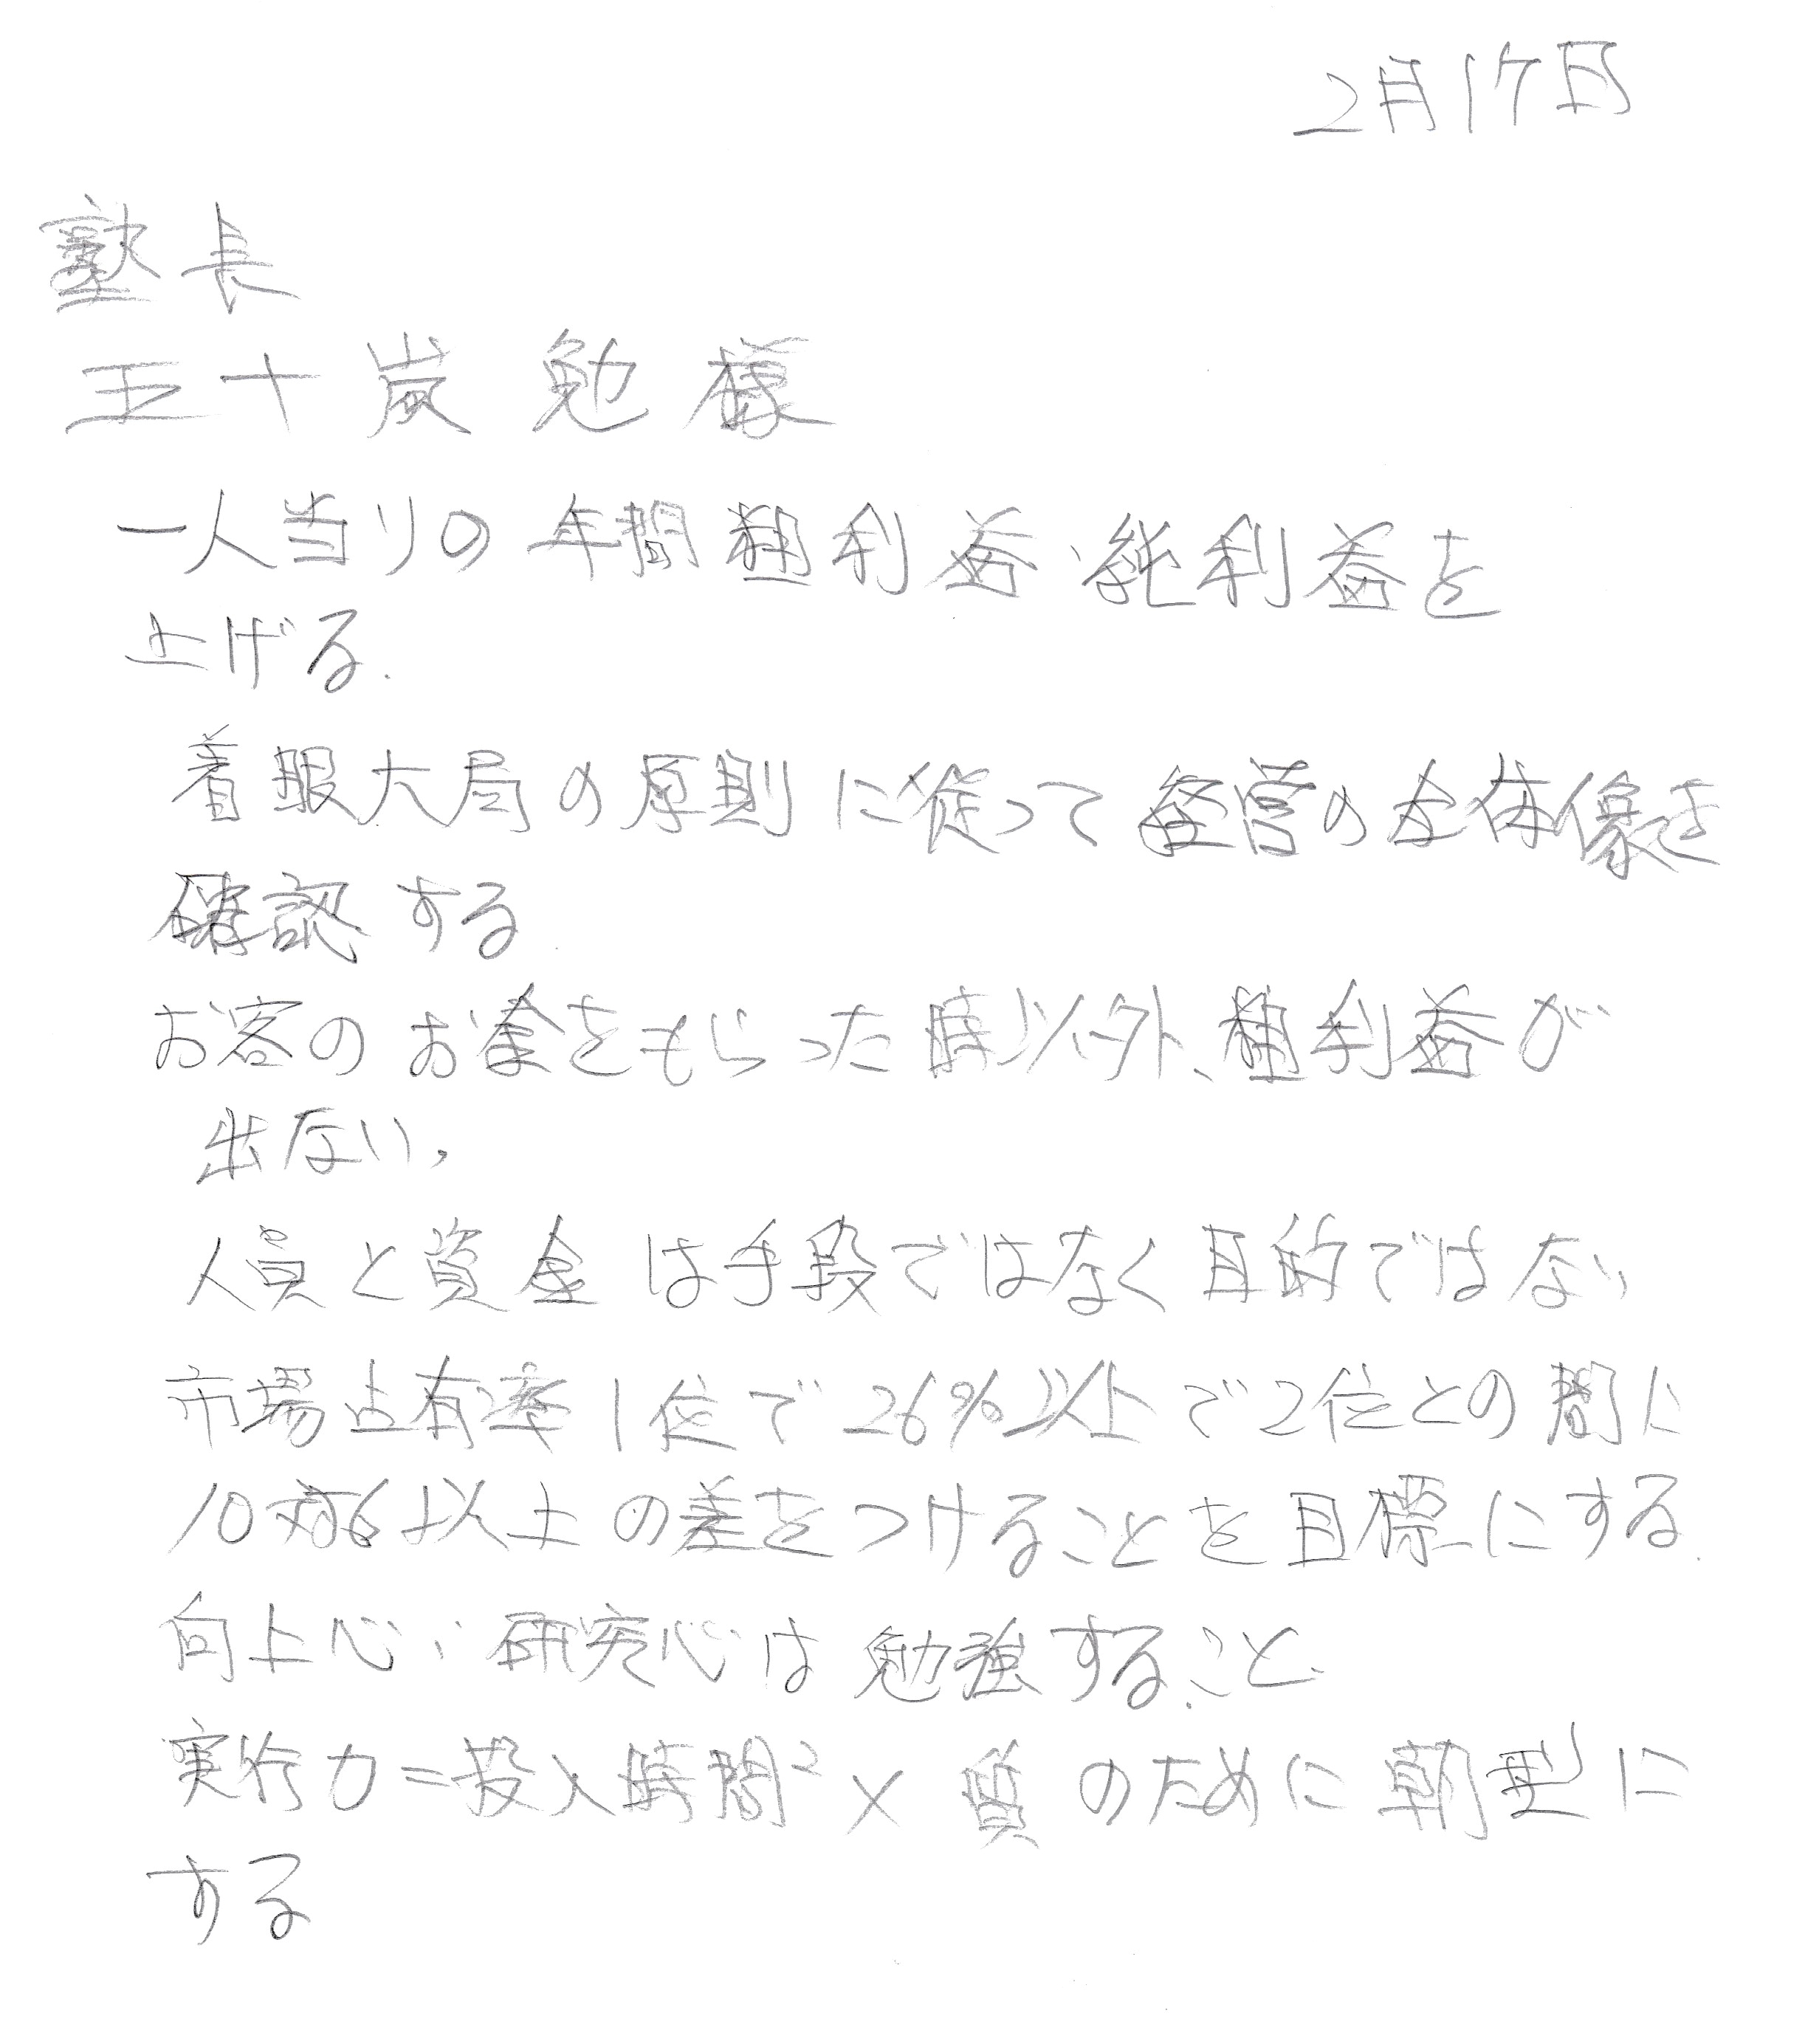 2月17日
塾長
五十嵐勉様
一人当りの年間粗利益、純利益を
上げる.
着眼大局の原則に従って経営の全体像を
確認する
お客のお金をもらった時以外、粗利益が
出ない。
人員と資金は手段ではなく目的ではない
市場占有率1位で26%以上で2位との間に
10対6以上の差をつけることを目標にする.
向上心、研究心は勉強すること.
実行力=投入時間²×質のために朝型に
する